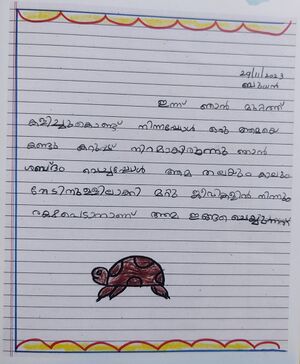 29/11/2023
ബുധൻ
ഇന്ന് ഞാൻ മുറ്റത്ത്
കളിച്ചുകൊണ്ട് നിന്നപ്പോൾ ഒരു ആമയെ
കണ്ടു കറുപ്പ് നിറമായിരുന്നു ഞാൻ
ശബ്ദം വെച്ചപ്പോൾ ആമ തലയും കാലും
തോടിനുള്ളിലാക്കി മറ്റു ജീവികളിൽ നിന്നും
രക്ഷപെടാനാണ് ആമ ഇങ്ങനെ ചെയ്യുന്നത്